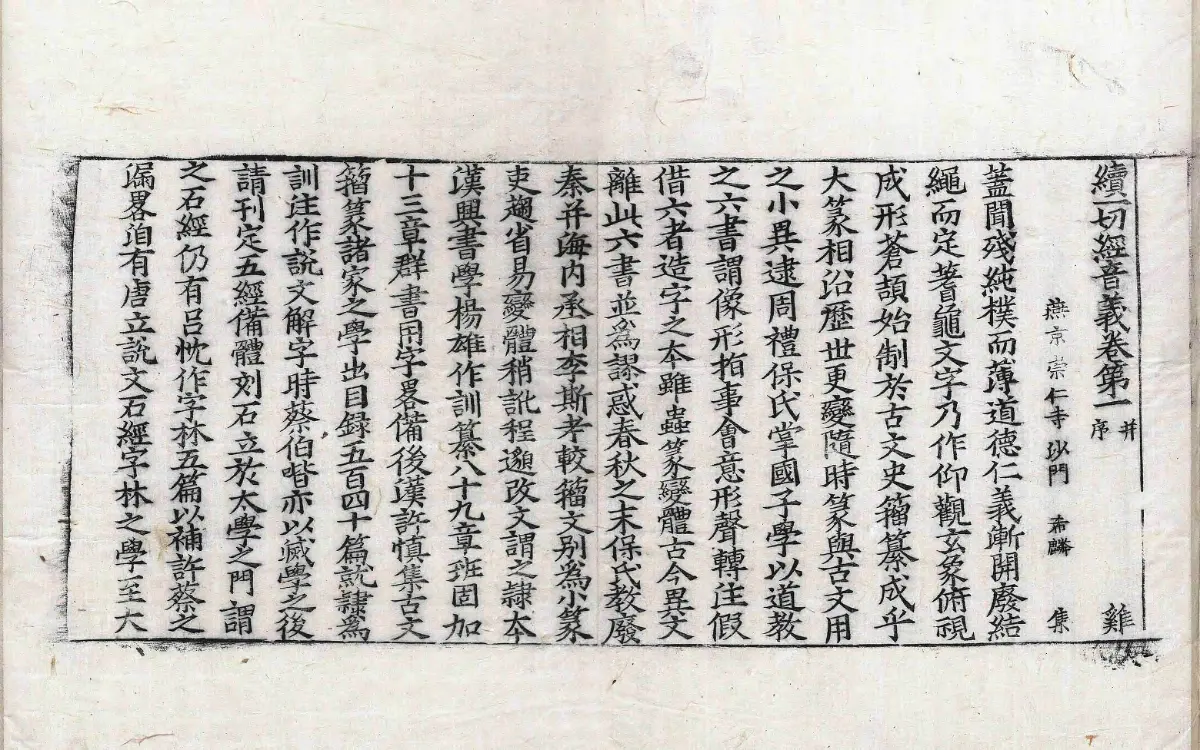 續一切經音義卷第一 并序 雞
燕京崇仁寺沙門 希麟 集
蓋聞殘純樸而薄道德仁義漸開廢結
繩而定蓍龜文字乃作仰觀玄象俯視
成形蒼頡始制於古文史籀纂成乎
大篆相沿歷世更變隨時篆與古文用
之小異逮周禮保氏掌國子學以道教
之六書謂像形指事會意形聲轉注假
借六者造字之本雖蟲篆變體古今異文
離此六書並爲謬惑春秋之末保氏教廢
秦并海內丞相李斯考較籀文別爲小篆
吏趨省易變體稍訛程邈改文謂之隸本
漢興書學楊雄作訓纂八十九章班固加
十三章群書用字畧備後漢許慎集古文
籀篆諸家之學出目録五百四十篇就隸爲
訓注作說文解字時蔡伯喈亦以滅學之後
請刊定五經備體刻石立於太學之門謂
之石經仍有呂忱作字林五篇以補許蔡之
漏畧洎有唐立說文石經字林之學至大